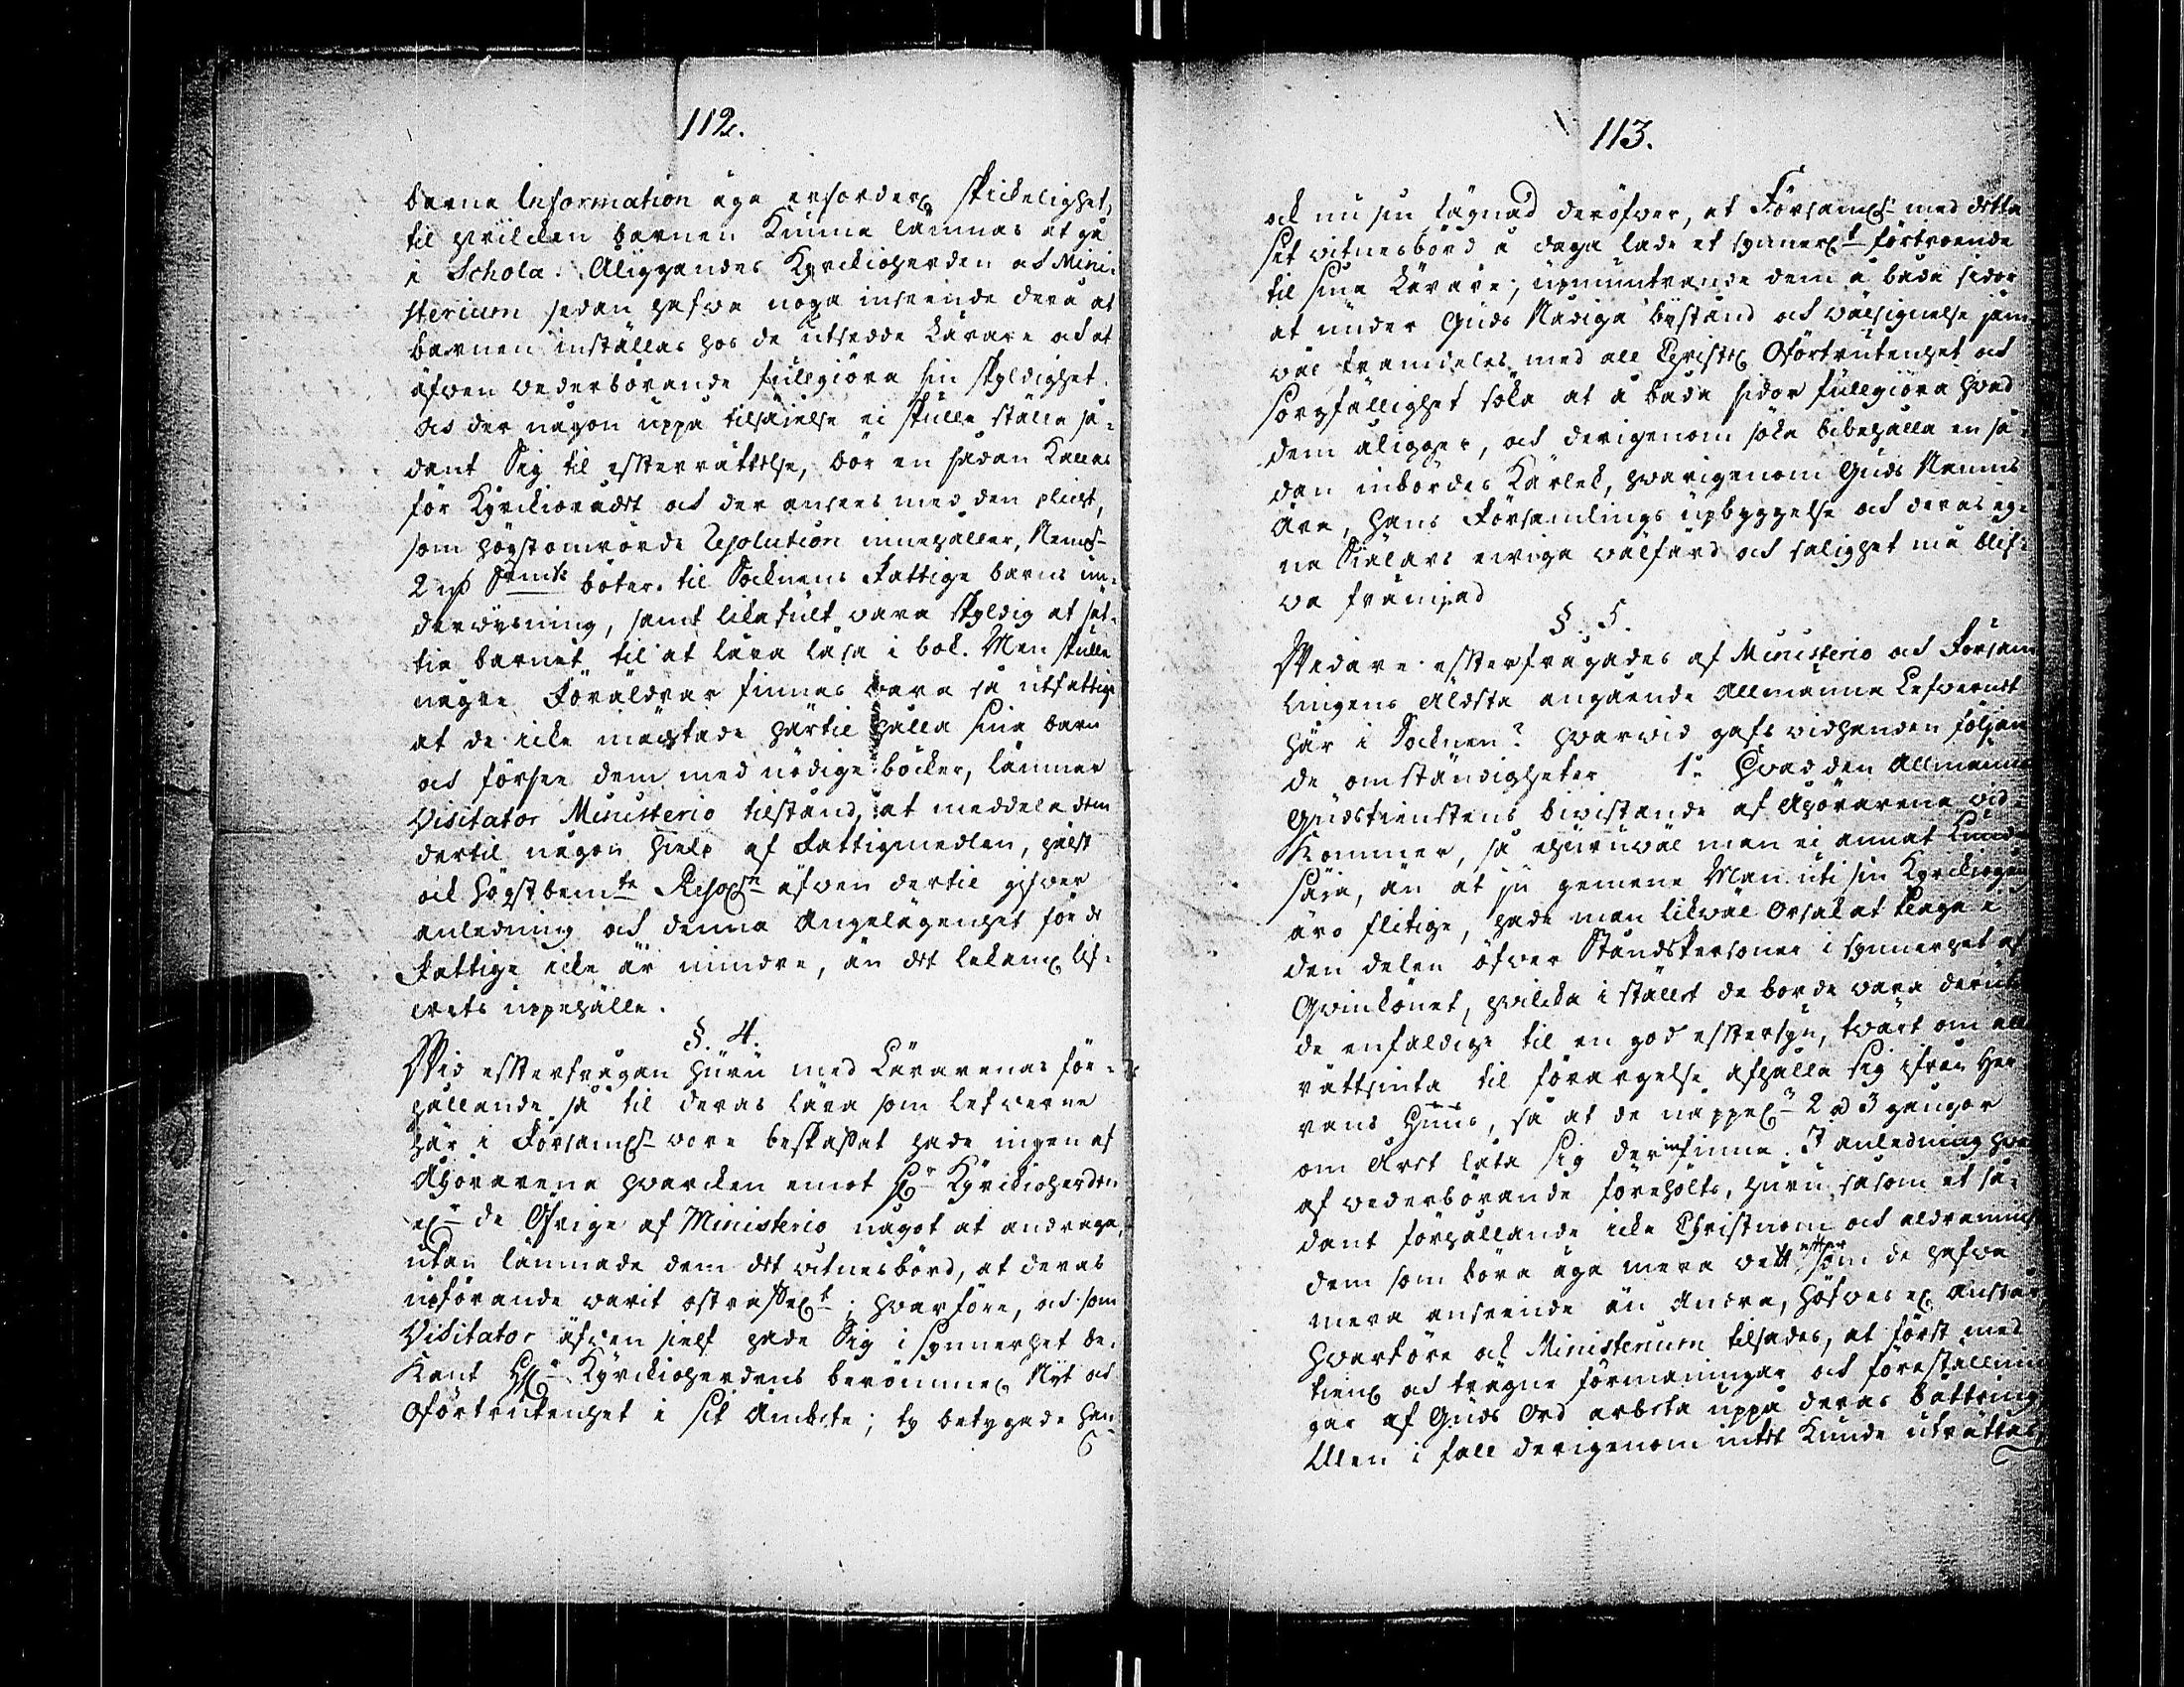 112.
barna Information äga erforderl. skickelighet,
til hvilcken barnen kunna lämnas at gå
i Schola. Aliggandes Kyrckioherden och Mini-
sterium sedan hafva noga inseende derå at
barnen inställas hos de utsedde Lärare och at
äfven vederbörande fullgiöra sin skyldighet.
och der någon uppå tilsäjelse ei skulle ställa så-
dant Sig til efterrättelse, bör en sådan kallas
för Kyrckiorådet och der anses med den plicht,
som högstomrörde Resolution innehåller, Neml.
2 böter til Sochnens Fattige barns un-
dervisning, samt likafult vara skyldig at sät-
tia barnet til at lära läsa i bok. Men skulle
någre Föräldrar finnas vara så utfattige
at de icke mächtade härtil hålla sina barn
och förse dem med nödige böcker, lämnar
Visitator Ministerio tilstånd, at meddela dem
dertil någon hielp af Fattigmedlen, hälst
ock högstbemte Resol:n äfven dertil gifver
anledning och denna angelägenhet för de
Fattige icke är mindre, än det lekaml. lif-
vets uppehälle.
§. 4.
Wid efterfrågan huru med Lärarenas för-
hållande så til deras lära som lefverne
här i Församl:n vore beskaffat hade ingen af
Åhörarena hvarcken emot Hr Kyrckioherden
el:r de Öfrige af Ministerio något at andraga,
utan lämnade dem det vitnesbörd, at deras
upförande varit ostraffel:t; hvarföre, och som
Visitator äfven sielf hade Sig i synnerhet be-
kant Hr Kyrckioherdens berömmel. Nit och
Oförtrutenhet i sit Ämbete; ty betygade han
113.
ock nu sin hägnad deröfver, at Församl:n med detta
sit vitnesbörd å daga lade et synnerl:t förtroende
til sina Lärare; upmuntrande dem å båda sidor
at under Guds Nådiga bistånd och välsignelse jäm-
väl framdeles med all Christel. Oförtrutenhet och
sorgfällighet söka at å båda sidor fullgiöra hvad
dem åligger, och derigenom söka bibehålla en så-
dan inbördes Kärlek, hvarigenom Guds Namns
Ära, hans Församlings upbyggelse och deras eg-
na Siälars eviga välfärd och salighet må blif-
va främjad
§. 5.
Widare efterfrågades af Ministerio och Försam
lingens Äldsta angående Allmänna Lefvernet
här i Sochnen? hvarvid gafs vidhanden följan
de omständigheter 1:o Hvad den Allmänna
Gudstienstens bivistande af Åhörarena vid-
kommer, så ehuruväl man ei annat kunde
säja, än at ju gemene Man uti sin Kyrckiogång
äro flitige, hade man likväl Orsak at klaga i
den delen öfver Ståndspersoner i synnerhet af
Qvinkönet, hvilcka i stället de borde vara deruti
de enfaldige til en god eftersyn, tvärt om alla
rättsinta til förargelse afhålla sig ifrån Her
rans Huus, så at de näppel:n 2 a 3 gångor
om Året låta sig derinfinna. I anledning hvar
af vederbörande föreholts, huru såsom et så-
dant förhållande icke Christnom och aldramindst
dem som böra äga mera vett efter som de hafva
mera anseende än Andra, höfves el. anstår
hvarföre ock Ministerium tilsades, at först med
tienl. och trägne förmaningar och föreställnin
gar af Guds Ord arbeta uppå deras bättring
Men i fall derigenom intet kunde uträttas,